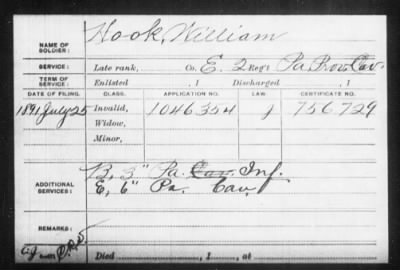 NAME OF SOLDIER: Hook, William
SERVICE: Late rank, Co. E, 2 Reg't Pa Prov. Cav.
TERM OF SERVICE: Enlisted , 1 Discharged , 1
DATE OF FILING. CLASS. APPLICATION NO. LAW. CERTIFICATE NO.
1891 July 25 Invalid, 1046354 J 756729
Widow,
Minor,
ADDITIONAL SERVICES: B, 3" Pa. Cav. Inf.
E, 6" Pa. Cav.
REMARKS:
Died , 1 , at